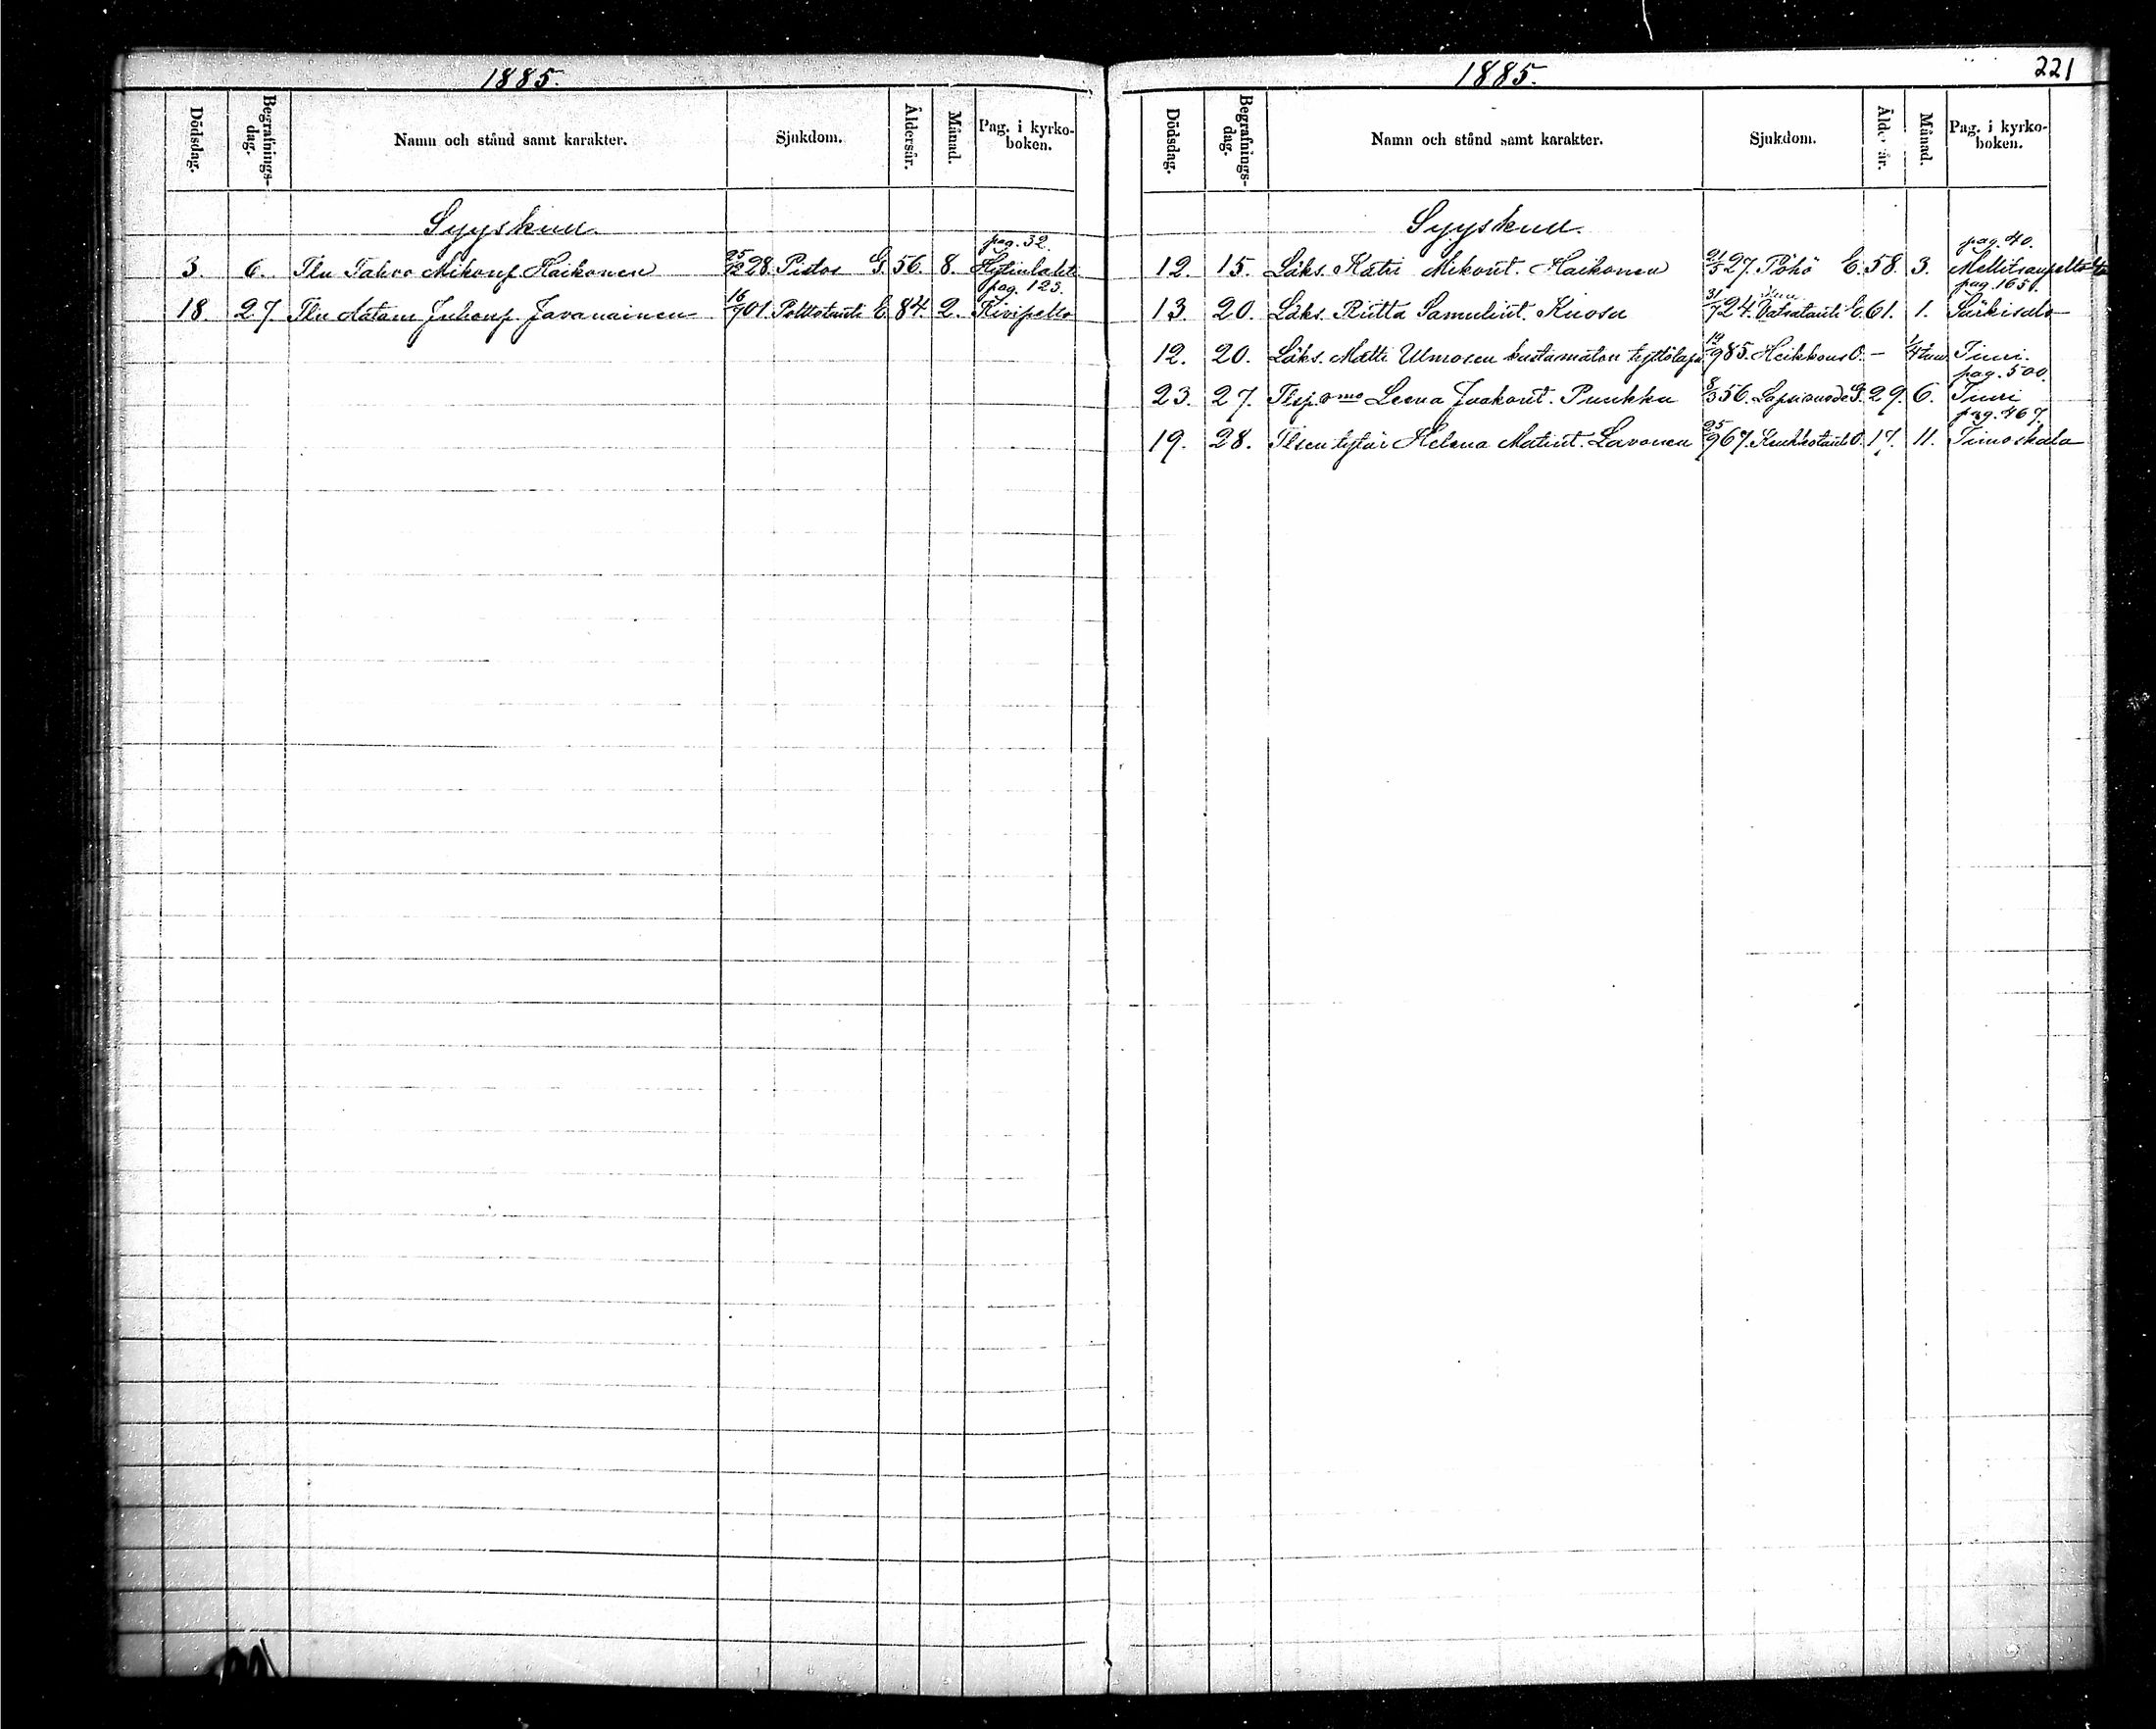 1885.
Dödsdag. Begrafnings-dag. Namn och stånd samt karakter. Sjukdom. Åldersår. Månad. Pag. i kyrko-boken.
Syyskuu.
pag. 32.
3. 6. Tln Tahvo Mikonp. Haikonen 25/12 28. Pistos G. 56. 8. Hytinlahti
pag. 123.
18. 27. Tln Aatam Juhonp. Javanainen 16/7 01. Polttotauti E. 84. 2. Kivipelto
1885. 221
Dödsdag. Begrafnings-dag. Namn och stånd samt karakter. Sjukdom. Ålders år. Månad. Pag. i kyrko-boken.
Syyskuu.
pag. 40.
12. 15. Läks. Katri Mikont. Haikonen 21/5 27. Pöhö E. 58. 3.
pag. 165.
13. 20. Läks. Riitta Samulint. Kuosa 31/7 24. Vatsatauti E. 61. 1. Särkisalo
12. 20. Läks. Matti Ulmosen kastamaton tyttölaps. 12/9 85. Heikkous O. - 1/4 Tiuri.
pag. 500.
23. 27. Tlsp. vmo Leena Jaakont. Puukka 8/3 56. Lapsivuode G. 29. 6. Tiuri
pag. 467
19. 28. Tlsen tytär Helena Matint. Lavonen 25/9 67. Keuhkotauti O. 17. 11. Timoskala